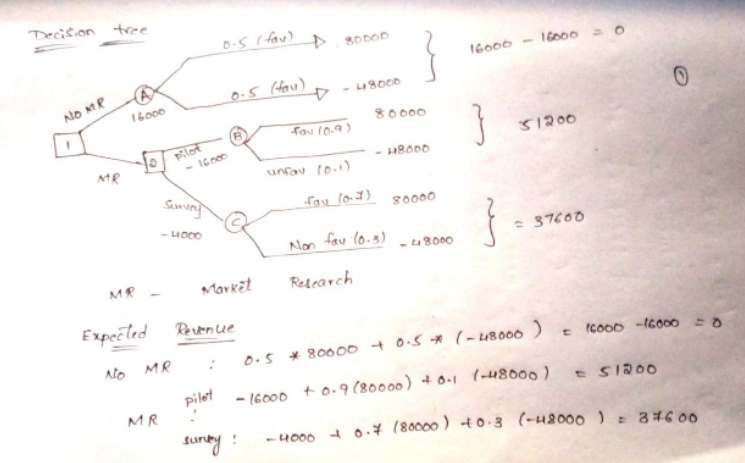 Decision tree
0.5 (fav) 80000
16000 - 16000 = 0
①
No MR A 0.5 (fav) - 48000
16000
1
MR 2 pilot - 16000 B fav (0.9) 80000
51200
unfav (0.1) - 48000
Survey - 4000 C fav (0.7) 80000
= 37600
Non fav (0.3) - 48000
MR - Market Research
Expected Revenue
No MR : 0.5 * 80000 + 0.5 * (-48000) = 16000 - 16000 = 0
pilot - 16000 + 0.9 (80000) + 0.1 (-48000) = 51200
MR :
survey : - 4000 + 0.7 (80000) + 0.3 (-48000) = 37600